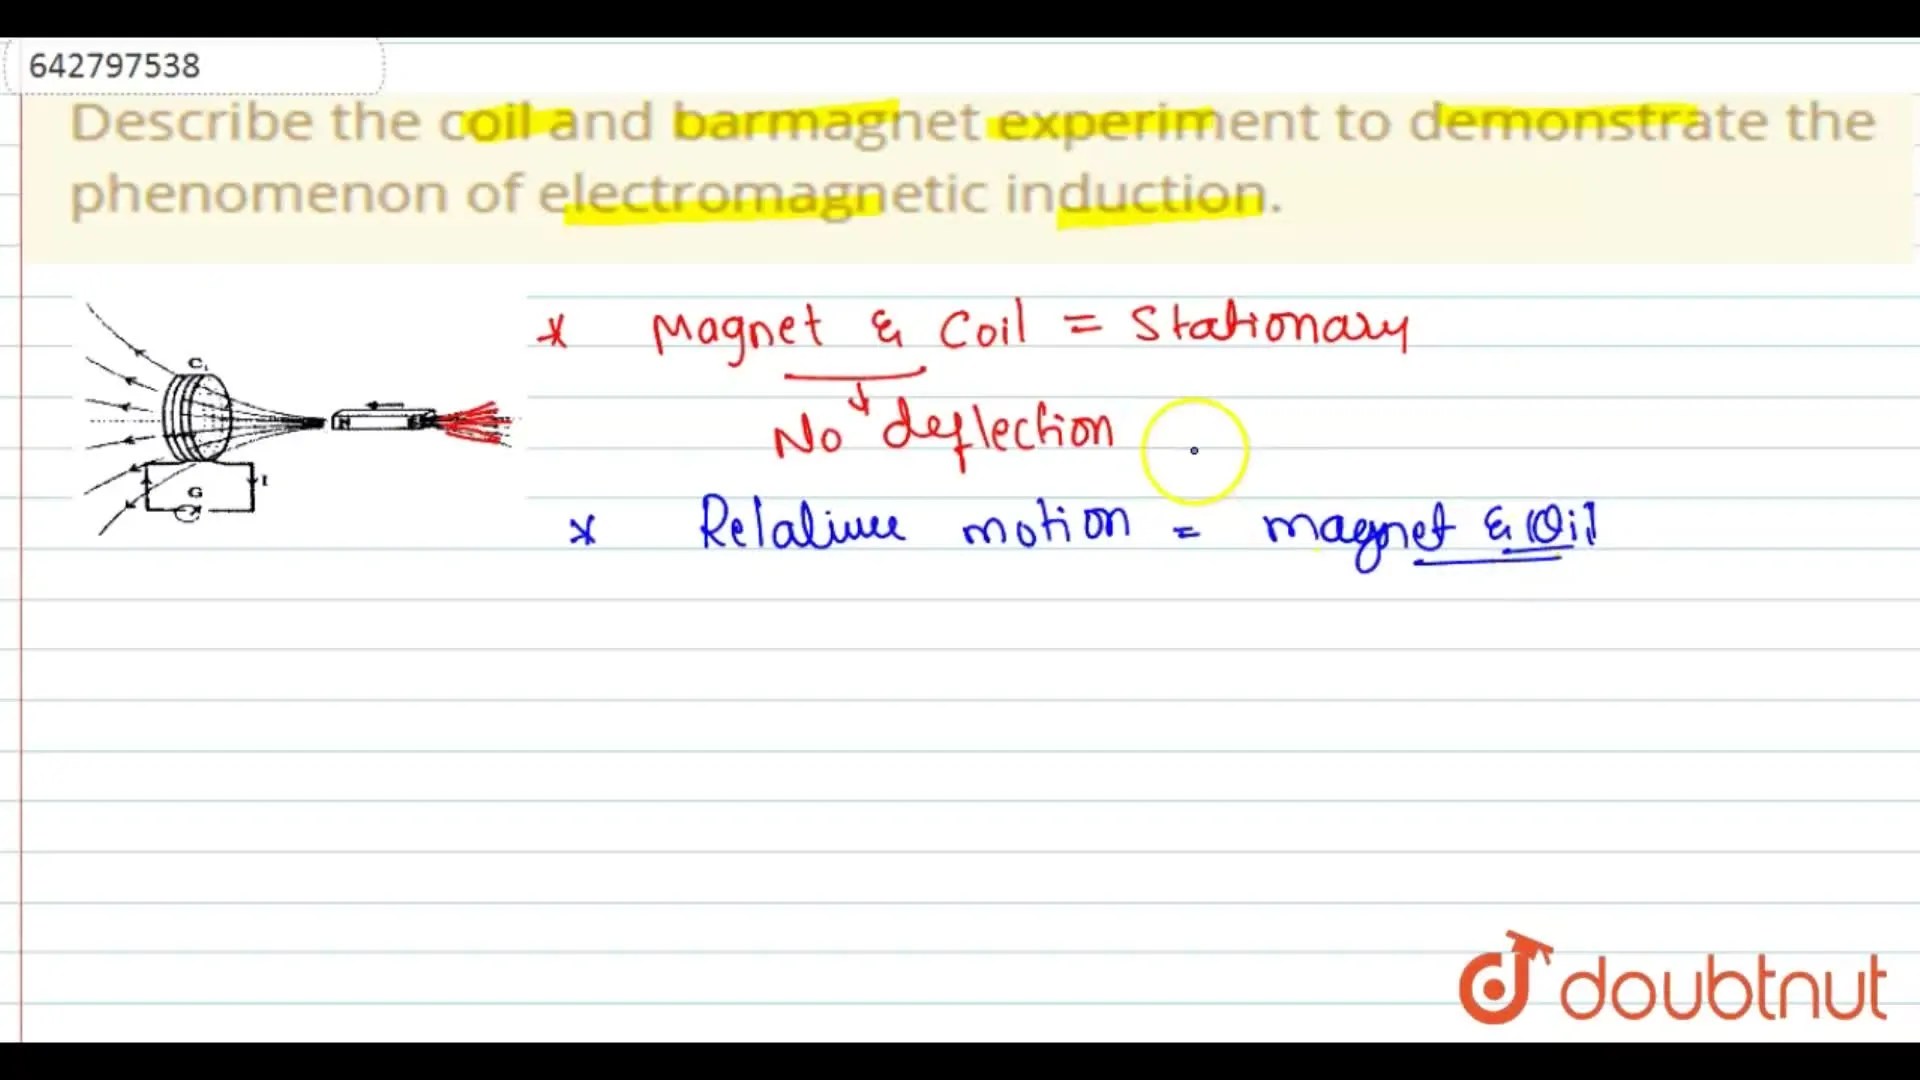 642797538
Describe the coil and barmagnet experiment to demonstrate the
phenomenon of electromagnetic induction.
* Magnet & Coil = Stationary
No deflection
* Relative motion = magnet & Coil
C₁
N
G
I
doubtnut